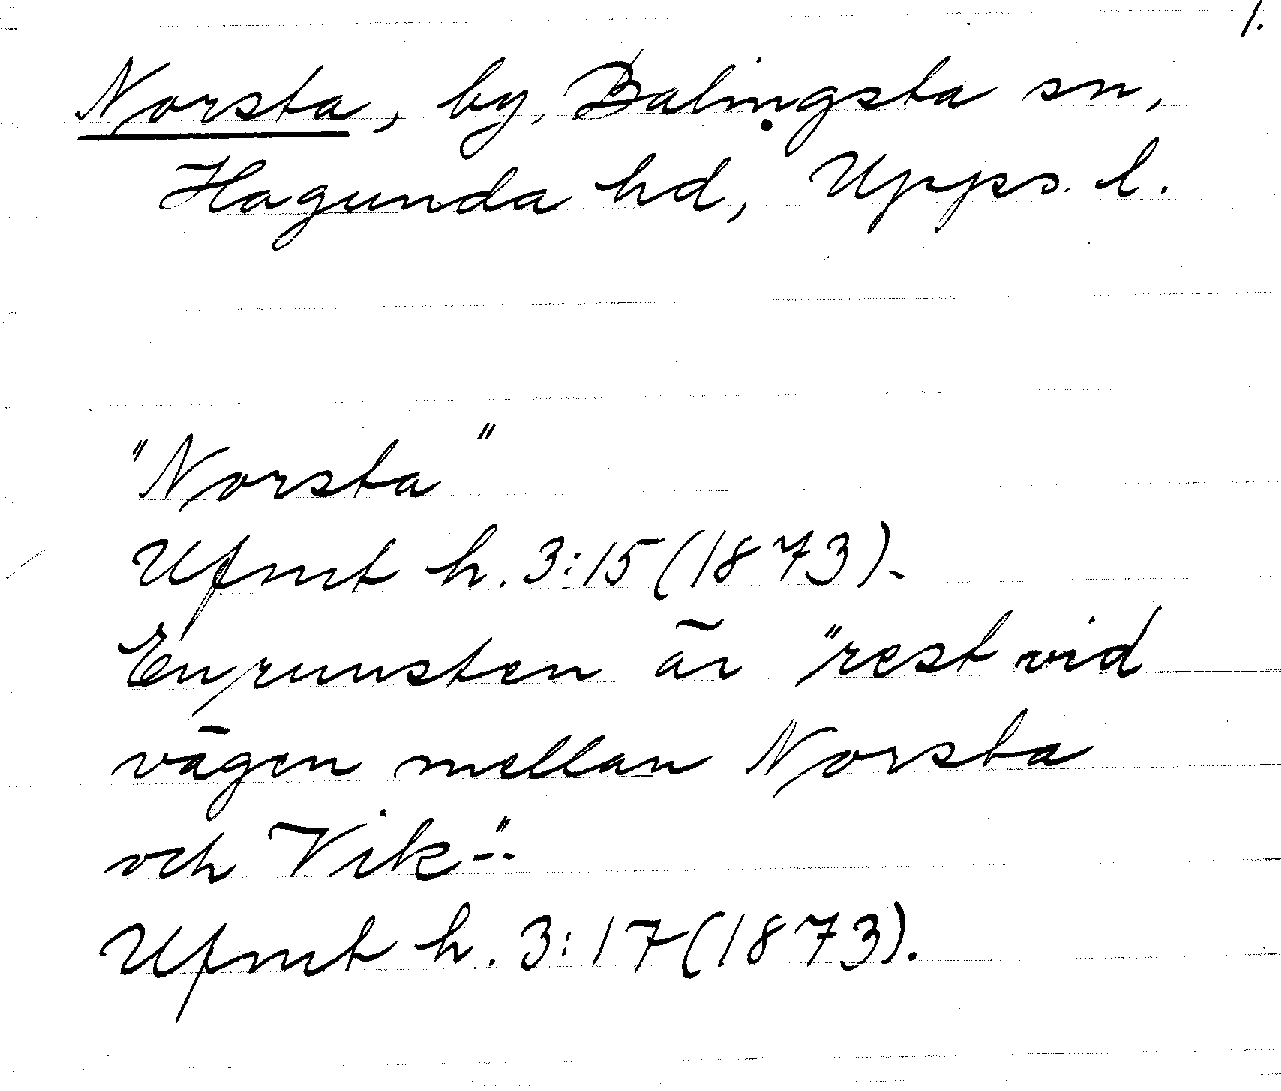 1.
Norsta, by, Balingsta sn,
Hagunda hd, Upps. l.
"Norsta"
Ufmt h. 3:15 (1873).
En runsten är "rest vid
vägen mellan Norsta
och Vik-".
Ufmt h. 3:17 (1873).